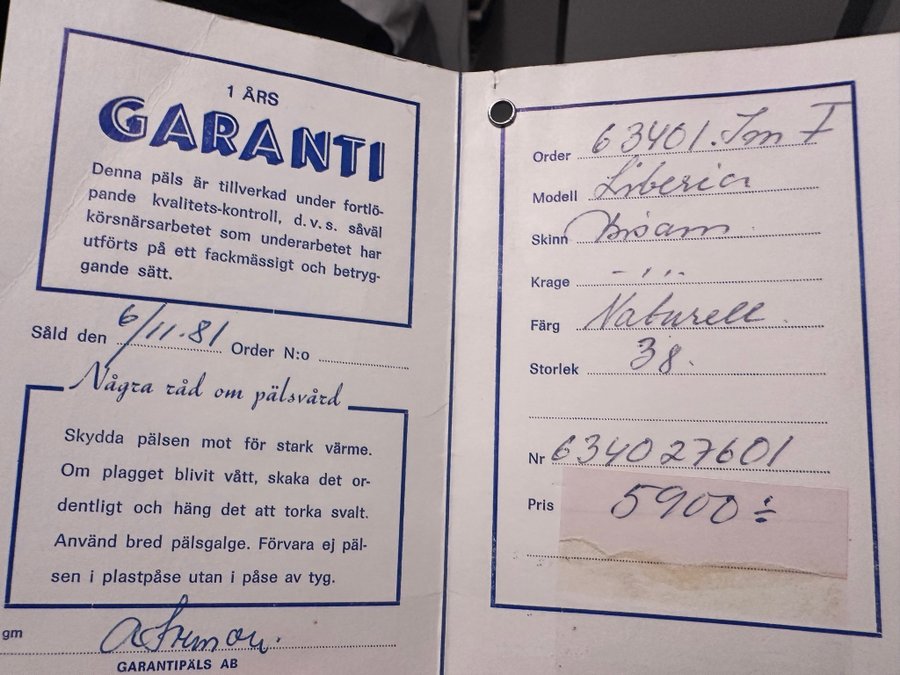 1 ÅRS
GARANTI
Denna päls är tillverkad under fortlö-
pande kvalitets-kontroll, d.v.s. såväl
körsnärsarbetet som underarbetet har
utförts på ett fackmässigt och betryg-
gande sätt.
Såld den 6/11.81 Order N:o
Några råd om pälsvård
Skydda pälsen mot för stark värme.
Om plagget blivit vått, skaka det or-
dentligt och häng det att torka svalt.
Använd bred pälsgalge. Förvara ej päl-
sen i plastpåse utan i påse av tyg.
gm
GARANTIPÄLS AB
Order 63401.
Modell Liberia
Skinn Bisam
Krage - ; ; ;
Färg Naturell
Storlek 38.
Nr 634027601
Pris 5900 ÷